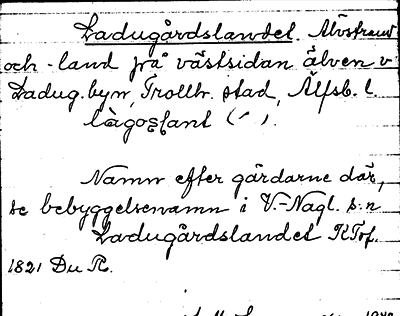 Ladugårdslandet. Älvstrand
och -land på västsidan älven v
Ladug.byn, Trollh. stad, Älfsb. l.
Namn efter gårdarne där,
se bebyggelsenamn i V.-Nagl. s:n
Ladugårdslandet KTof.
1821 Du R.